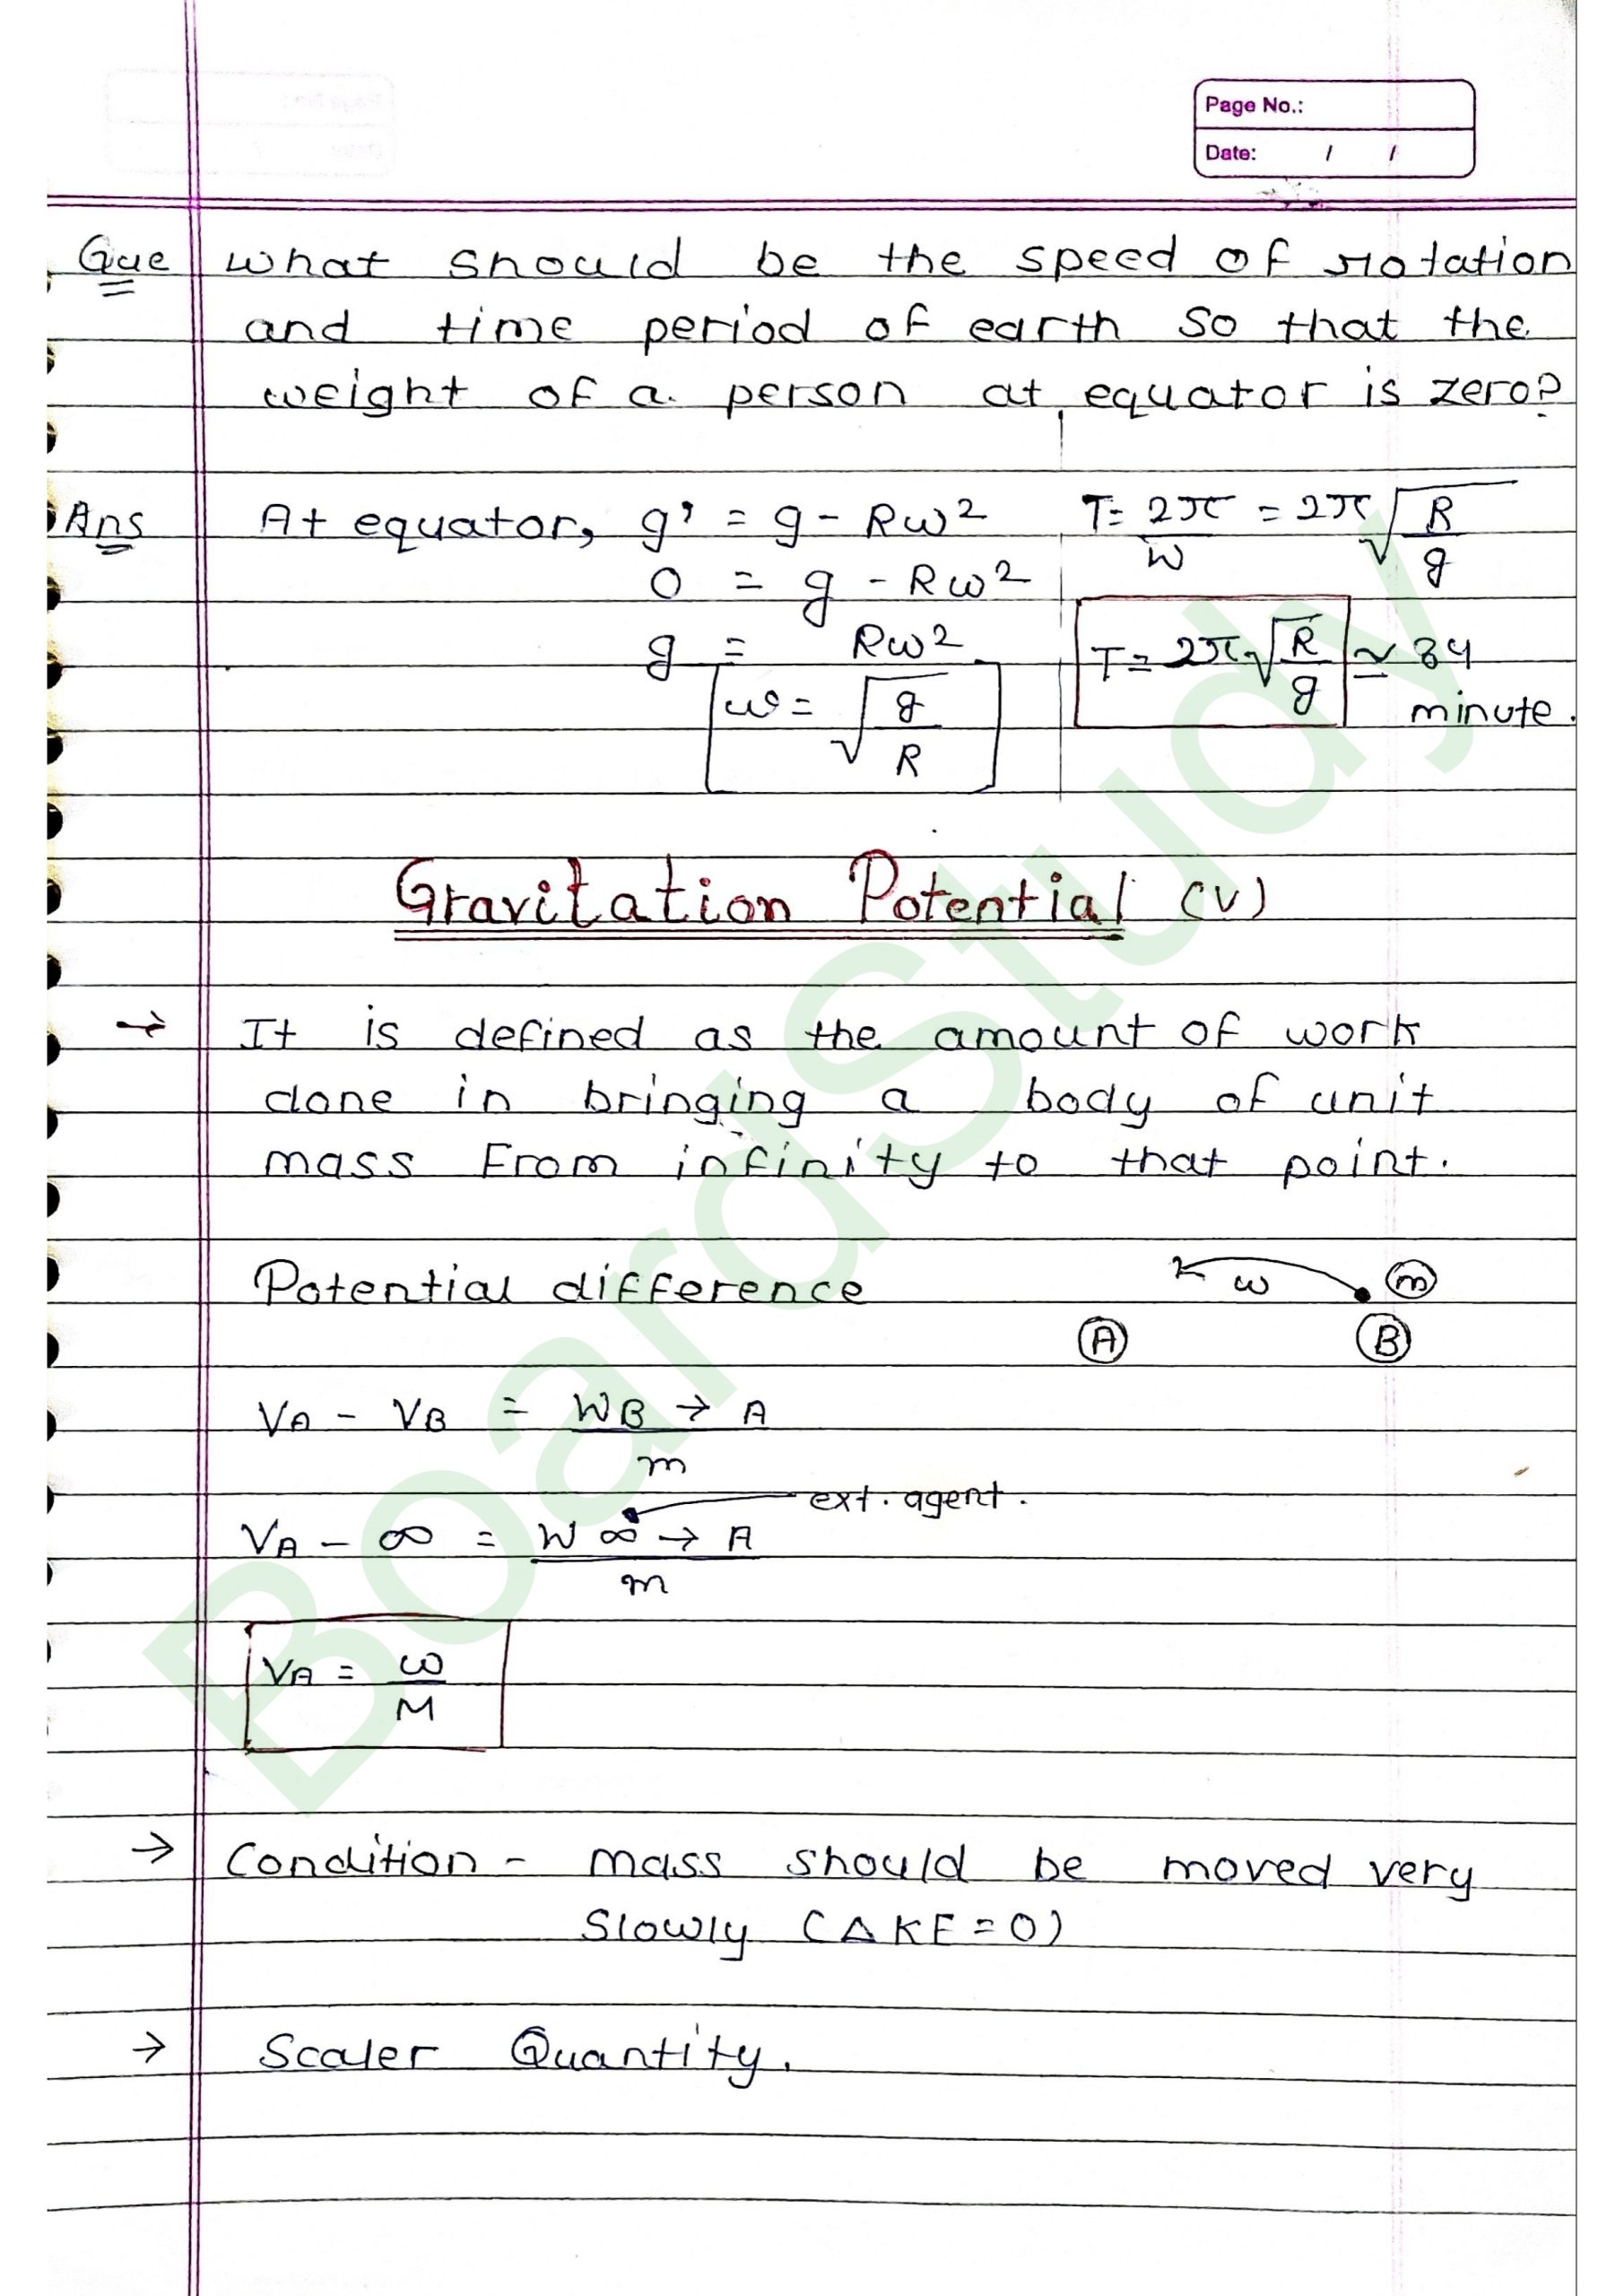 Page No.:
Date: / /
Que what should be the speed of rotation
and time period of earth so that the
weight of a person at equator is zero?
Ans At equator, g' = g - Rω²
0 = g - Rω²
g = Rω²
ω = √(g/R)
T = 2π/W = 2π√(R/g)
T = 2π√(R/g) ≃ 84
minute.
Gravitation Potential (V)
→ It is defined as the amount of work
done in bringing a body of unit
mass From infinity to that point.
Potential difference
ω m
A B
VA - VB = WB → A / m
ext. agent.
VA - ∞ = W ∞ → A / m
VA = ω / M
→ Condition - mass should be moved very
Slowly (ΔKE = 0)
→ Scaler Quantity.
BoardStudy